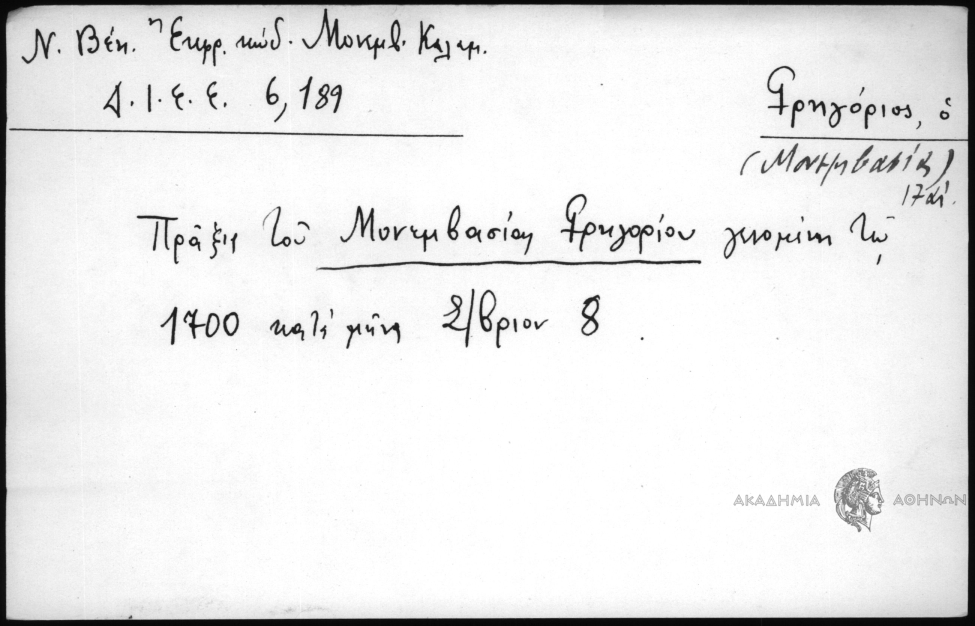 Ν. Βέη. Ἡ Ἐκφρ. κώδ. Μονεμβ. Καλαμ.
Δ. Ι. Ε. Ε. 6, 189
Γρηγόριος, ὁ
(Μονεμβασίας)
17 αἰ.
Πρᾶξις τοῦ Μονεμβασίας Γρηγορίου γενομένη τῷ
1700 κατά μῆνα Σ/βριον 8
ΑΚΑΔΗΜΙΑ ΑΘΗΝΩΝ